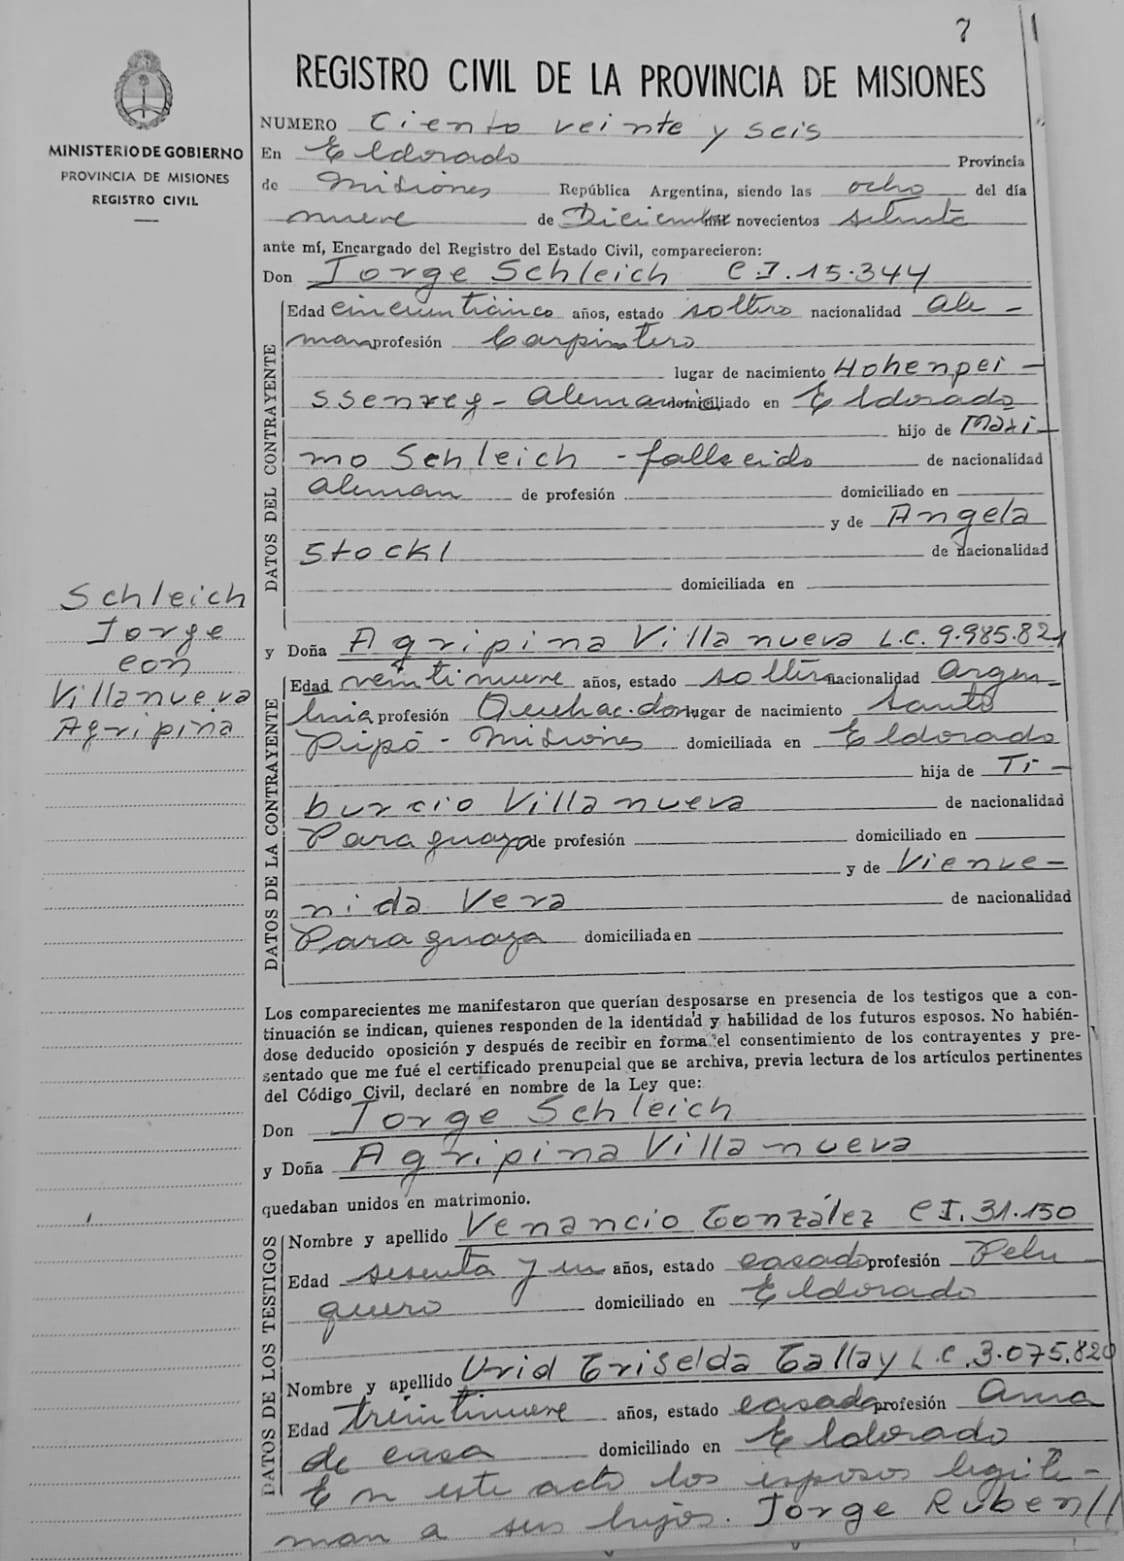 7
REGISTRO CIVIL DE LA PROVINCIA DE MISIONES
MINISTERIO DE GOBIERNO
PROVINCIA DE MISIONES
REGISTRO CIVIL
NUMERO Ciento veinte y seis
En Eldorado Provincia
de Misiones República Argentina, siendo las ocho del día
nueve de Diciembre novecientos setenta
ante mí, Encargado del Registro del Estado Civil, comparecieron:
Don Jorge Schleich C I. 15.344
DATOS DEL CONTRAYENTE
Edad cincuenticinco años, estado soltero nacionalidad ale-
mana profesión Carpintero
lugar de nacimiento Hohenpei-
ssenreg - Alemania domiciliado en Eldorado
hijo de Maxi-
mo Schleich - fallecido de nacionalidad
aleman de profesión domiciliado en
y de Angela
Stockl de nacionalidad
domiciliada en
Schleich
Jorge
con
Villanueva
Agripina
y Doña Agripina Villanueva L.C. 9.985.821
DATOS DE LA CONTRAYENTE
Edad veintinueve años, estado soltera nacionalidad argen-
tina profesión Quehac. dom lugar de nacimiento Santo
Pipó - Misiones domiciliada en Eldorado
hija de Ti-
burcio Villanueva de nacionalidad
Paraguaya de profesión domiciliado en
y de Vienve-
nida Vera de nacionalidad
Paraguaya domiciliada en
Los comparecientes me manifestaron que querían desposarse en presencia de los testigos que a con-
tinuación se indican, quienes responden de la identidad y habilidad de los futuros esposos. No habién-
dose deducido oposición y después de recibir en forma el consentimiento de los contrayentes y pre-
sentado que me fué el certificado prenupcial que se archiva, previa lectura de los artículos pertinentes
del Código Civil, declaré en nombre de la Ley que:
Don Jorge Schleich
y Doña Agripina Villanueva
quedaban unidos en matrimonio.
DATOS DE LOS TESTIGOS
Nombre y apellido Venancio González C I. 31.150
Edad sesenta y un años, estado casado profesión Pelu
quero domiciliado en Eldorado
Nombre y apellido Urid Griselda Gallay L.C. 3.075.820
Edad treintinueve años, estado casada profesión Ama
de casa domiciliado en Eldorado
En este acto los esposos legiti-
man a sus hijos. Jorge Ruben//